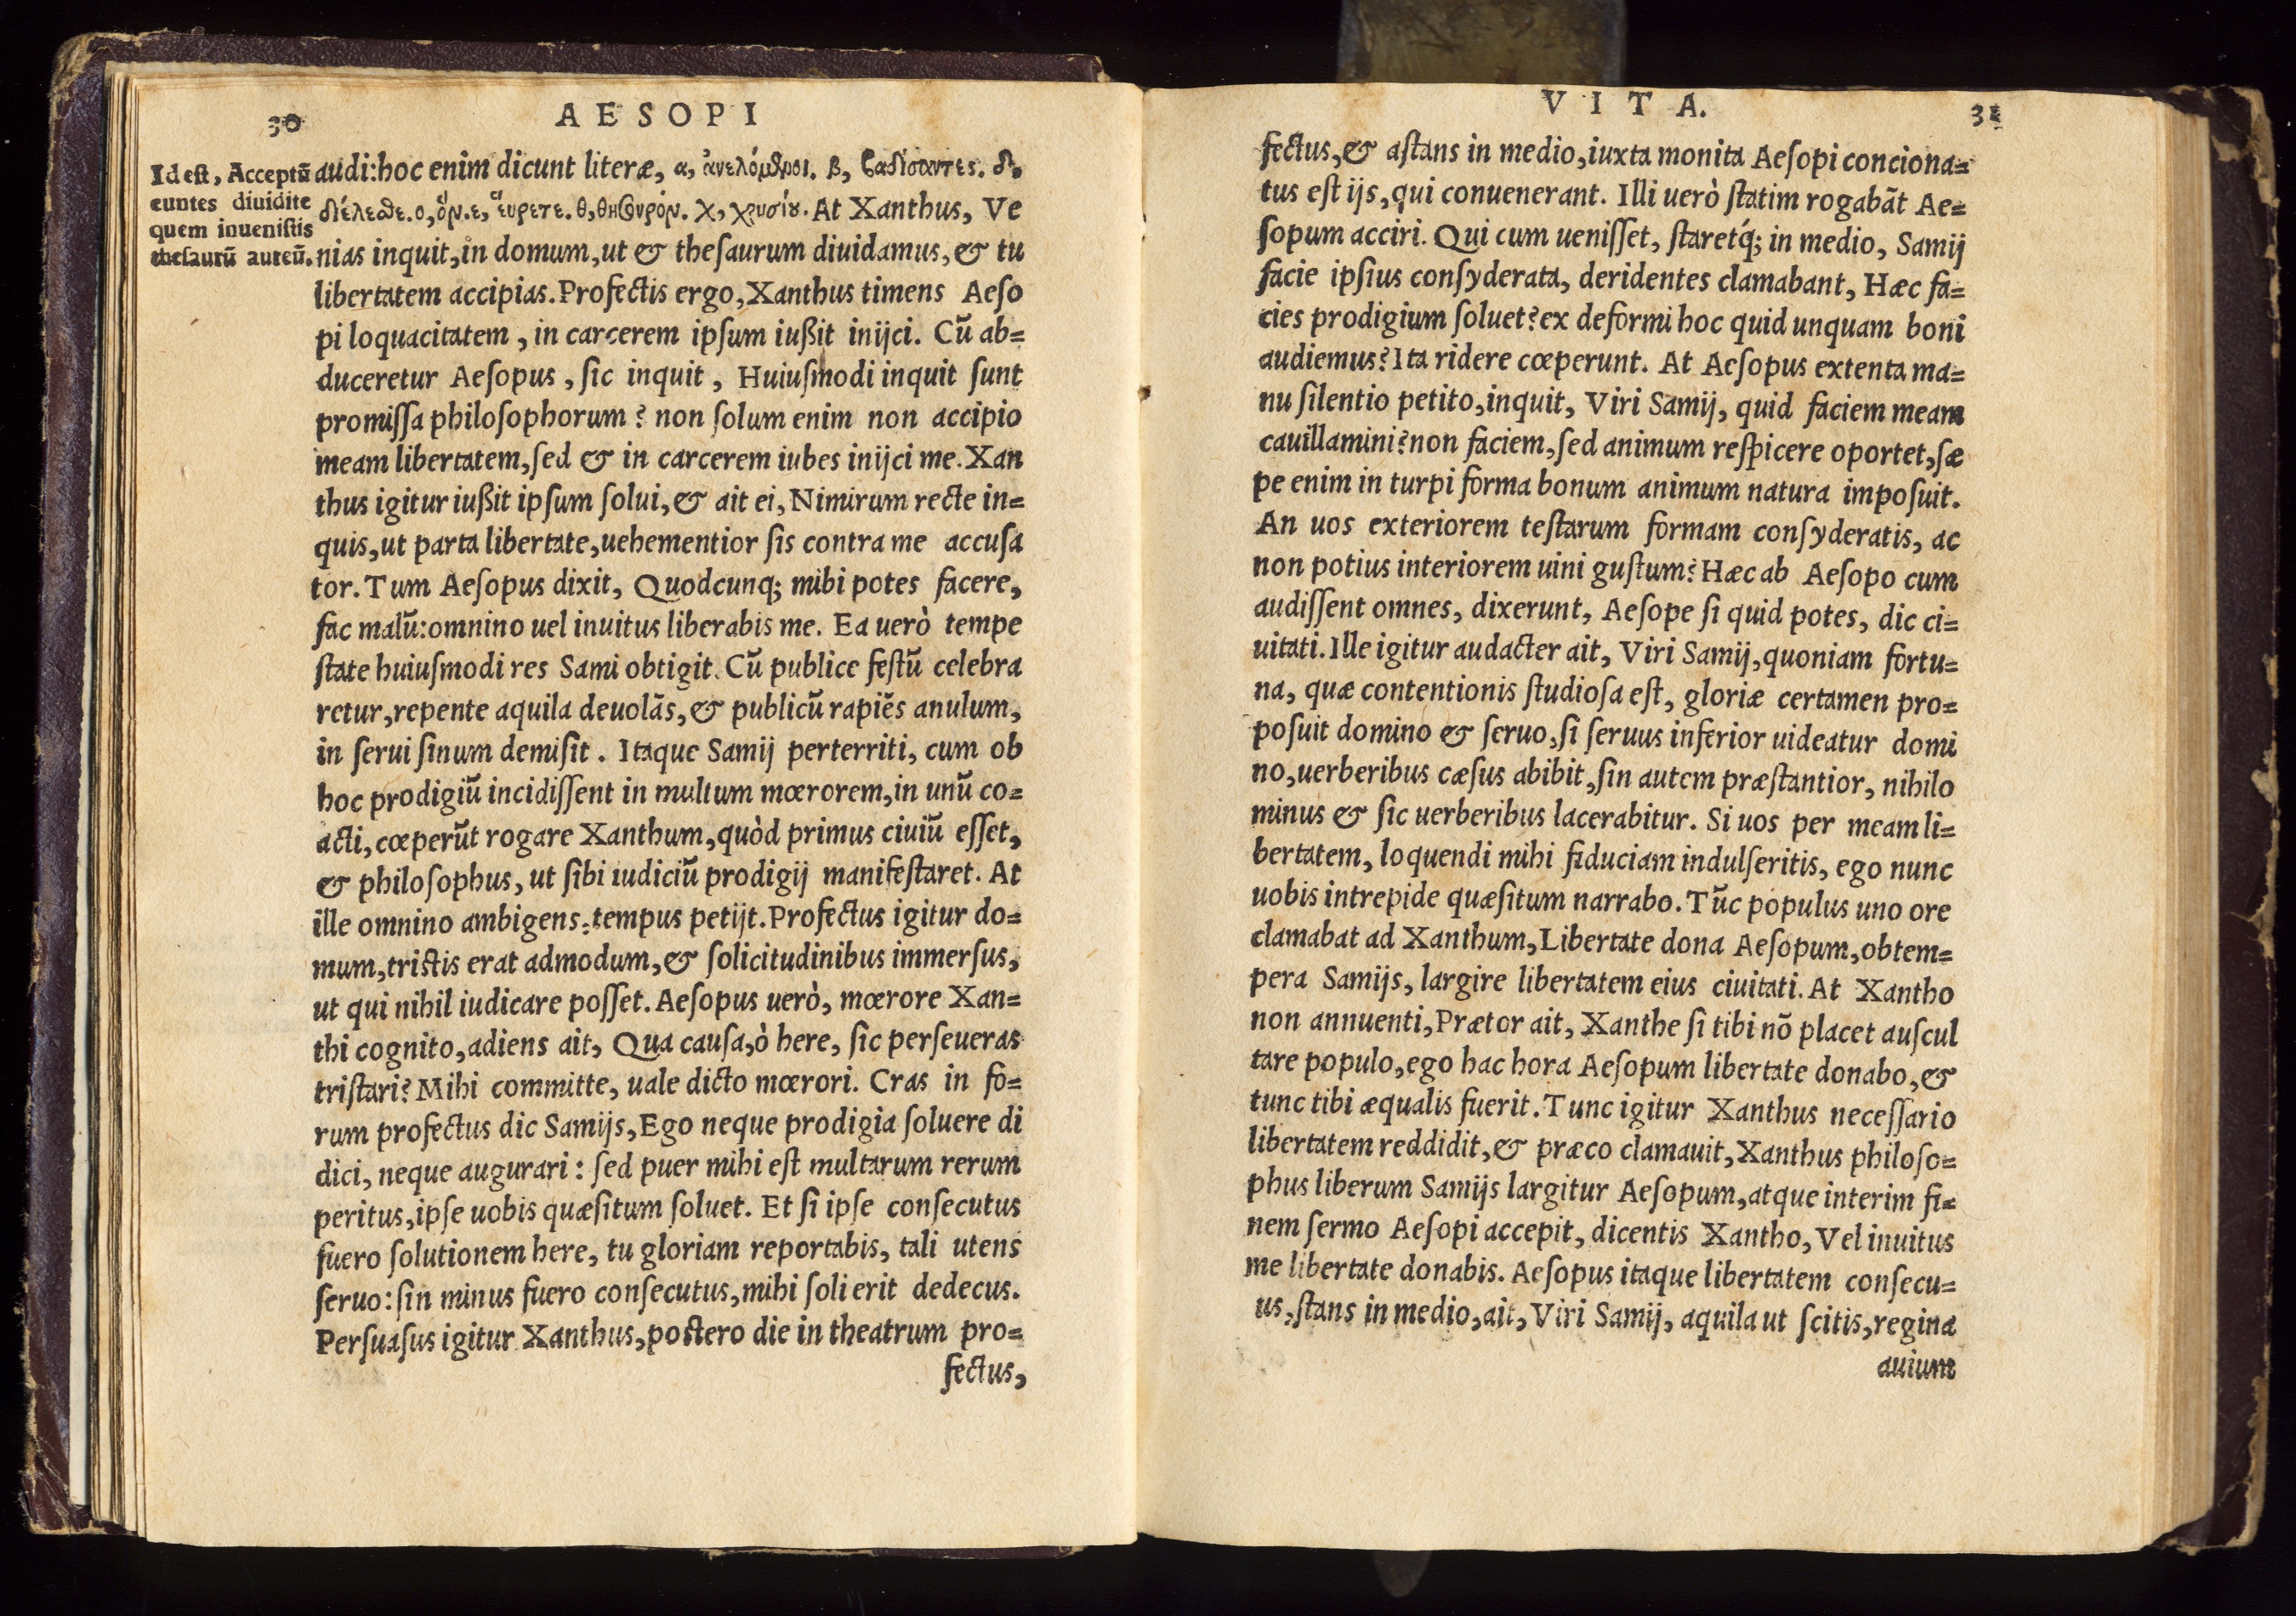 30 AESOPI
Id est, Acceptū
euntes diuidite
quem inuenistis
thesaurū aureū.
audi:hoc enim dicunt literæ, α, ἀνελόμενοι. β, βαδίσαντες. δ,
διέλεσθε. ο, ὅν. ε, εὕρετε. θ, θησαυρόν. χ, χρυσίου. At Xanthus, Ve
nias inquit,in domum,ut & thesaurum diuidamus,& tu
libertatem accipias.Profectis ergo,Xanthus timens Aeso
pi loquacitatem, in carcerem ipsum iußit inijci. Cū ab=
duceretur Aesopus, sic inquit, Huiusmodi inquit sunt
promissa philosophorum? non solum enim non accipio
meam libertatem,sed & in carcerem iubes inijci me. Xan
thus igitur iußit ipsum solui,& ait ei, Nimirum recte in=
quis,ut parta libertate,uehementior sis contra me accusa
tor. Tum Aesopus dixit, Quodcunq; mihi potes facere,
fac malū:omnino uel inuitus liberabis me. Ea uerò tempe
state huiusmodi res Sami obtigit. Cū publice festū celebra
retur,repente aquila deuolās,& publicū rapiēs anulum,
in serui sinum demisit. Itaque Samij perterriti, cum ob
hoc prodigiū incidissent in multum mœrorem,in unū co=
acti, cœperūt rogare Xanthum,quòd primus ciuiū esset,
& philosophus, ut sibi iudiciū prodigij manifestaret. At
ille omnino ambigens:tempus petijt.Profectus igitur do=
mum,tristis erat admodum,& solicitudinibus immersus,
ut qui nihil iudicare posset. Aesopus uerò, mœrore Xan=
thi cognito,adiens ait, Qua causa,ò here, sic perseueras
tristari? Mihi committe, uale dicto mœrori. Cras in fo=
rum profectus dic Samijs,Ego neque prodigia soluere di
dici, neque augurari: sed puer mihi est multarum rerum
peritus,ipse uobis quæsitum soluet. Et si ipse consecutus
fuero solutionem here, tu gloriam reportabis, tali utens
seruo:sin minus fuero consecutus,mihi soli erit dedecus.
Persuasus igitur Xanthus,postero die in theatrum pro=
fectus,
VITA. 31
fectus,& astans in medio,iuxta monita Aesopi conciona=
tus est ijs,qui conuenerant. Illi uerò statim rogabāt Ae=
sopum acciri. Qui cum uenisset, staretq́; in medio, Samij
facie ipsius consyderata, deridentes clamabant, Hæc fa=
cies prodigium soluet?ex deformi hoc quid unquam boni
audiemus?Ita ridere cœperunt. At Aesopus extenta ma=
nu silentio petito,inquit, Viri Samij, quid faciem meam
cauillamini?non faciem,sed animum respicere oportet,sæ
pe enim in turpi forma bonum animum natura imposuit.
An uos exteriorem testarum formam consyderatis, ac
non potius interiorem uini gustum? Hæc ab Aesopo cum
audissent omnes, dixerunt, Aesope si quid potes, dic ci=
uitati. Ille igitur audacter ait, Viri Samij,quoniam fortu=
na, quæ contentionis studiosa est, gloriæ certamen pro=
posuit domino & seruo,si seruus inferior uideatur domi
no,uerberibus cæsus abibit,sin autem præstantior, nihilo
minus & sic uerberibus lacerabitur. Si uos per meam li=
bertatem, loquendi mihi fiduciam indulseritis, ego nunc
uobis intrepide quæsitum narrabo. Tūc populus uno ore
clamabat ad Xanthum,Libertate dona Aesopum,obtem=
pera Samijs, largire libertatem eius ciuitati. At Xantho
non annuenti,Prætor ait, Xanthe si tibi nō placet auscul
tare populo,ego hac hora Aesopum libertate donabo,&
tunc tibi æqualis fuerit. Tunc igitur Xanthus necessario
libertatem reddidit,& præco clamauit,Xanthus philoso=
phus liberum Samijs largitur Aesopum,atque interim fi=
nem sermo Aesopi accepit, dicentis Xantho,Vel inuitus
me libertate donabis. Aesopus itaque libertatem consecu=
us,stans in medio,ait, Viri Samij, aquila ut scitis,regina
auium